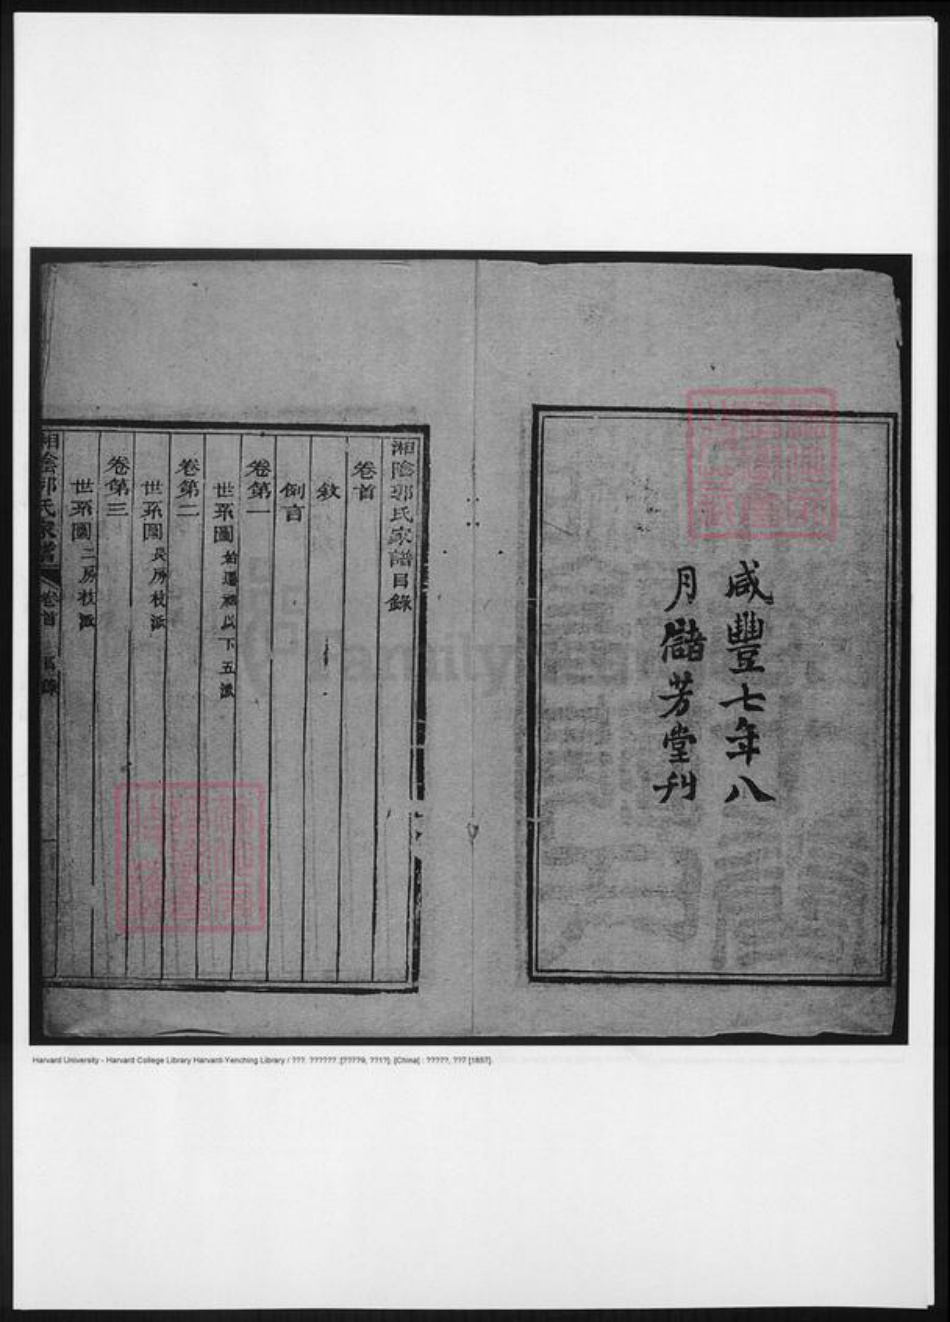 咸豐七年八
月儲芳堂刋
湘陰郭氏家譜目錄
卷首
敘
例言
卷第一
世系圖 始遷祖以下五派
卷第二
世系圖 長房枝派
卷第三
世系圖 二房枝派
湘陰郭氏家譜 卷首 目錄 一
Harvard University - Harvard College Library Harvard-Yenching Library / ???. ??????. [????9, ??1?]. [China] : ?????, ??7 [1857].